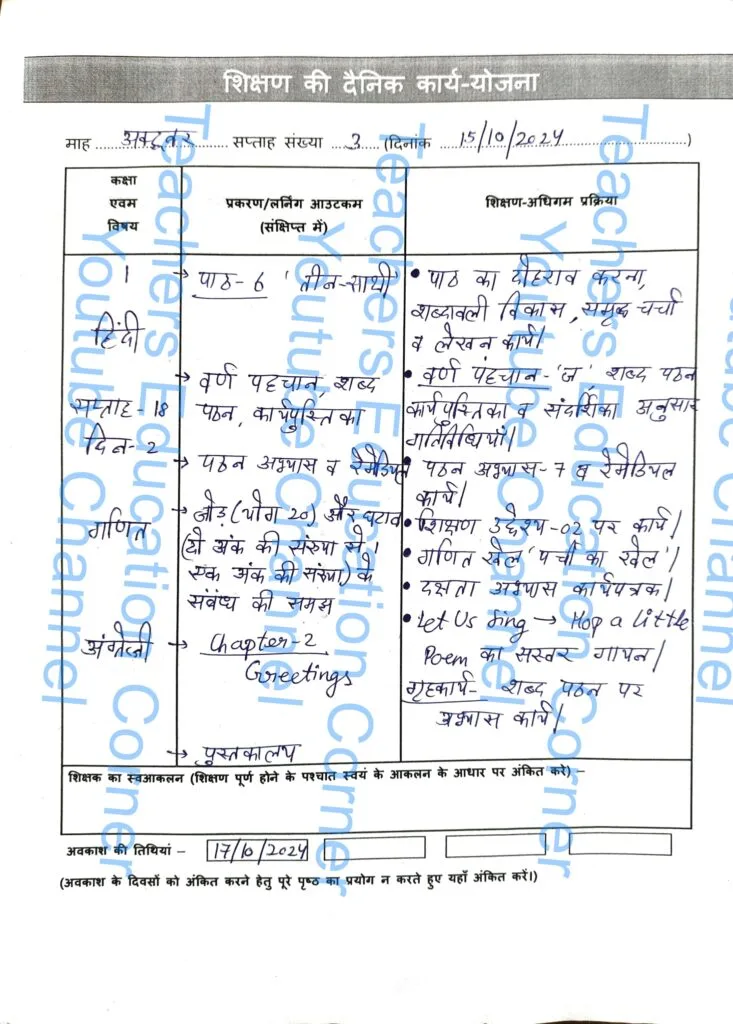 शिक्षण की दैनिक कार्य-योजना
माह अक्टूबर सप्ताह संख्या 3 (दिनांक 15/10/2024)
कक्षा
एवम
विषय
प्रकरण/लर्निंग आउटकम
(संक्षिप्त में)
शिक्षण-अधिगम प्रक्रिया
1
हिंदी
सप्ताह-18
दिन-2
→ पाठ-6 'तीन-साथी'
→ वर्ण पहचान, शब्द
पठन, कार्यपुस्तिका
→ पठन अभ्यास व रेमेडियल
• पाठ का दोहराव करना,
शब्दावली विकास, समूह चर्चा
व लेखन कार्य।
• वर्ण पहचान-'ज', शब्द पठन
कार्यपुस्तिका व संदर्शिका अनुसार
गतिविधियाँ।
• पठन अभ्यास-7 व रेमेडियल
कार्य।
गणित
→ जोड़ (योग 20) और घटाव
(दो अंक की संख्या से।
एक अंक की संख्या) के
संबंध की समझ
• शिक्षण उद्देश्य-02 पर कार्य।
• गणित खेल 'पर्ची का खेल'।
• दक्षता अभ्यास कार्यपत्रक।
अंग्रेज्जी
→ Chapter-2
Greetings
• Let Us Sing → Hop a Little
Poem का सस्वर गायन।
गृहकार्य- शब्द पठन पर
अभ्यास कार्य।
→ पुस्तकालय
शिक्षक का स्वआकलन (शिक्षण पूर्ण होने के पश्चात स्वयं के आकलन के आधार पर अंकित करें) –
अवकाश की तिथियां – 17/10/2024
(अवकाश के दिवसों को अंकित करने हेतु पूरे पृष्ठ का प्रयोग न करते हुए यहाँ अंकित करें।)
Teachers Education Corner
Youtube Channel
Teachers Education Corner
Youtube Channel
Teachers Education Corner
Youtube Channel
Teachers Education Corner
Youtube Channel